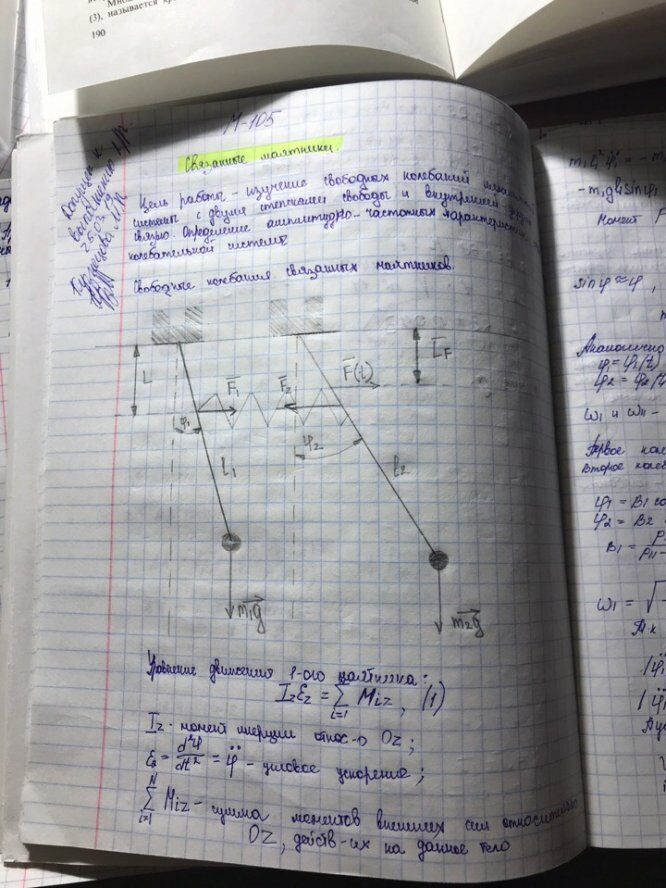 (3), называется
190
М-105
Связанные маятники.
Цель работы - изучение свободных колебаний
системы с двумя степенями свободы и внутренней
связью. Определение амплитудно-частотных характеристик
колебательной системы
Свободные колебания связанных маятников.
Допущен к
выполнению л/р
25.03.19
L
F₁
F₂
F(t)
L_F
φ₁
φ₂
l₁
l₂
m₁g
m₂g
Уравнение движения 1-ого маятника:
I_z ε_z = ∑ M_iz, (1)
i=1
I_z - момент инерции относ-о OZ;
ε_z = d²φ/dt² = φ̈ - угловое ускорение;
N
∑ M_iz - сумма моментов внешних сил относительно
i=1
OZ, действ-их на данное тело
-m₁gl₁sinφ₁
Момент
sinφ≈φ,
Аналогично
φ₁=φ₁(t)
φ₂=φ₂(t)
ω₁ и ω₁₁
Первое
Второе
φ₁ = B₁ co
φ₂ = B₂
B₁ =
ω₁ = √